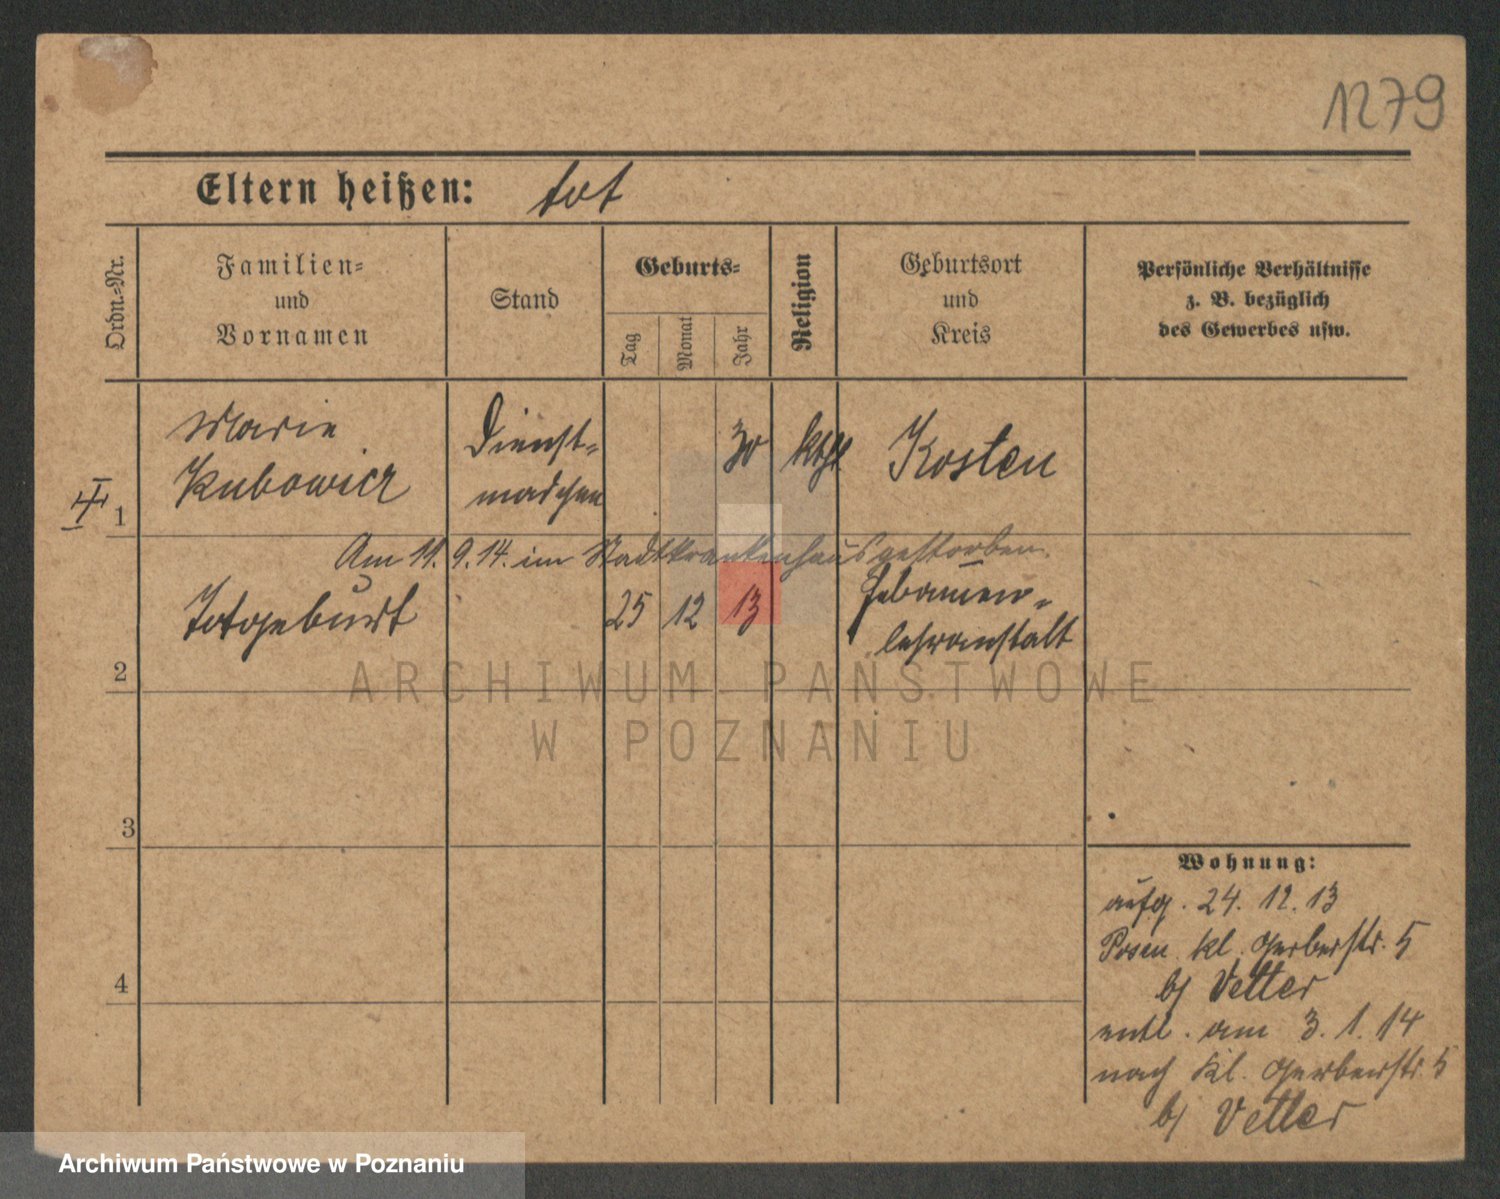 1279
Eltern heißen: tot
Ordn.-Nr.
Familien-
und
Vornamen
Stand
Geburts-
Tag
Monat
Jahr
Religion
Geburtsort
und
Kreis
Persönliche Verhältnisse
z. B. bezüglich
des Gewerbes usw.
1
Marie
Kubowicz
Dienst-
mädchen
30
kthl
Kosten
Am 11. 9. 14. im Stadtkrankenhaus gestorben.
2
Totgeburt
25
12
13
Hebammen-
lehranstalt
3
4
Wohnung:
aufg. 24. 12. 13
Posen kl. Gerberstr. 5
b/ Vetter
entl. am 3. 1. 14
nach kl. Gerberstr. 5
b/ Vetter
ARCHIWUM PAŃSTWOWE
W POZNANIU
Archiwum Państwowe w Poznaniu